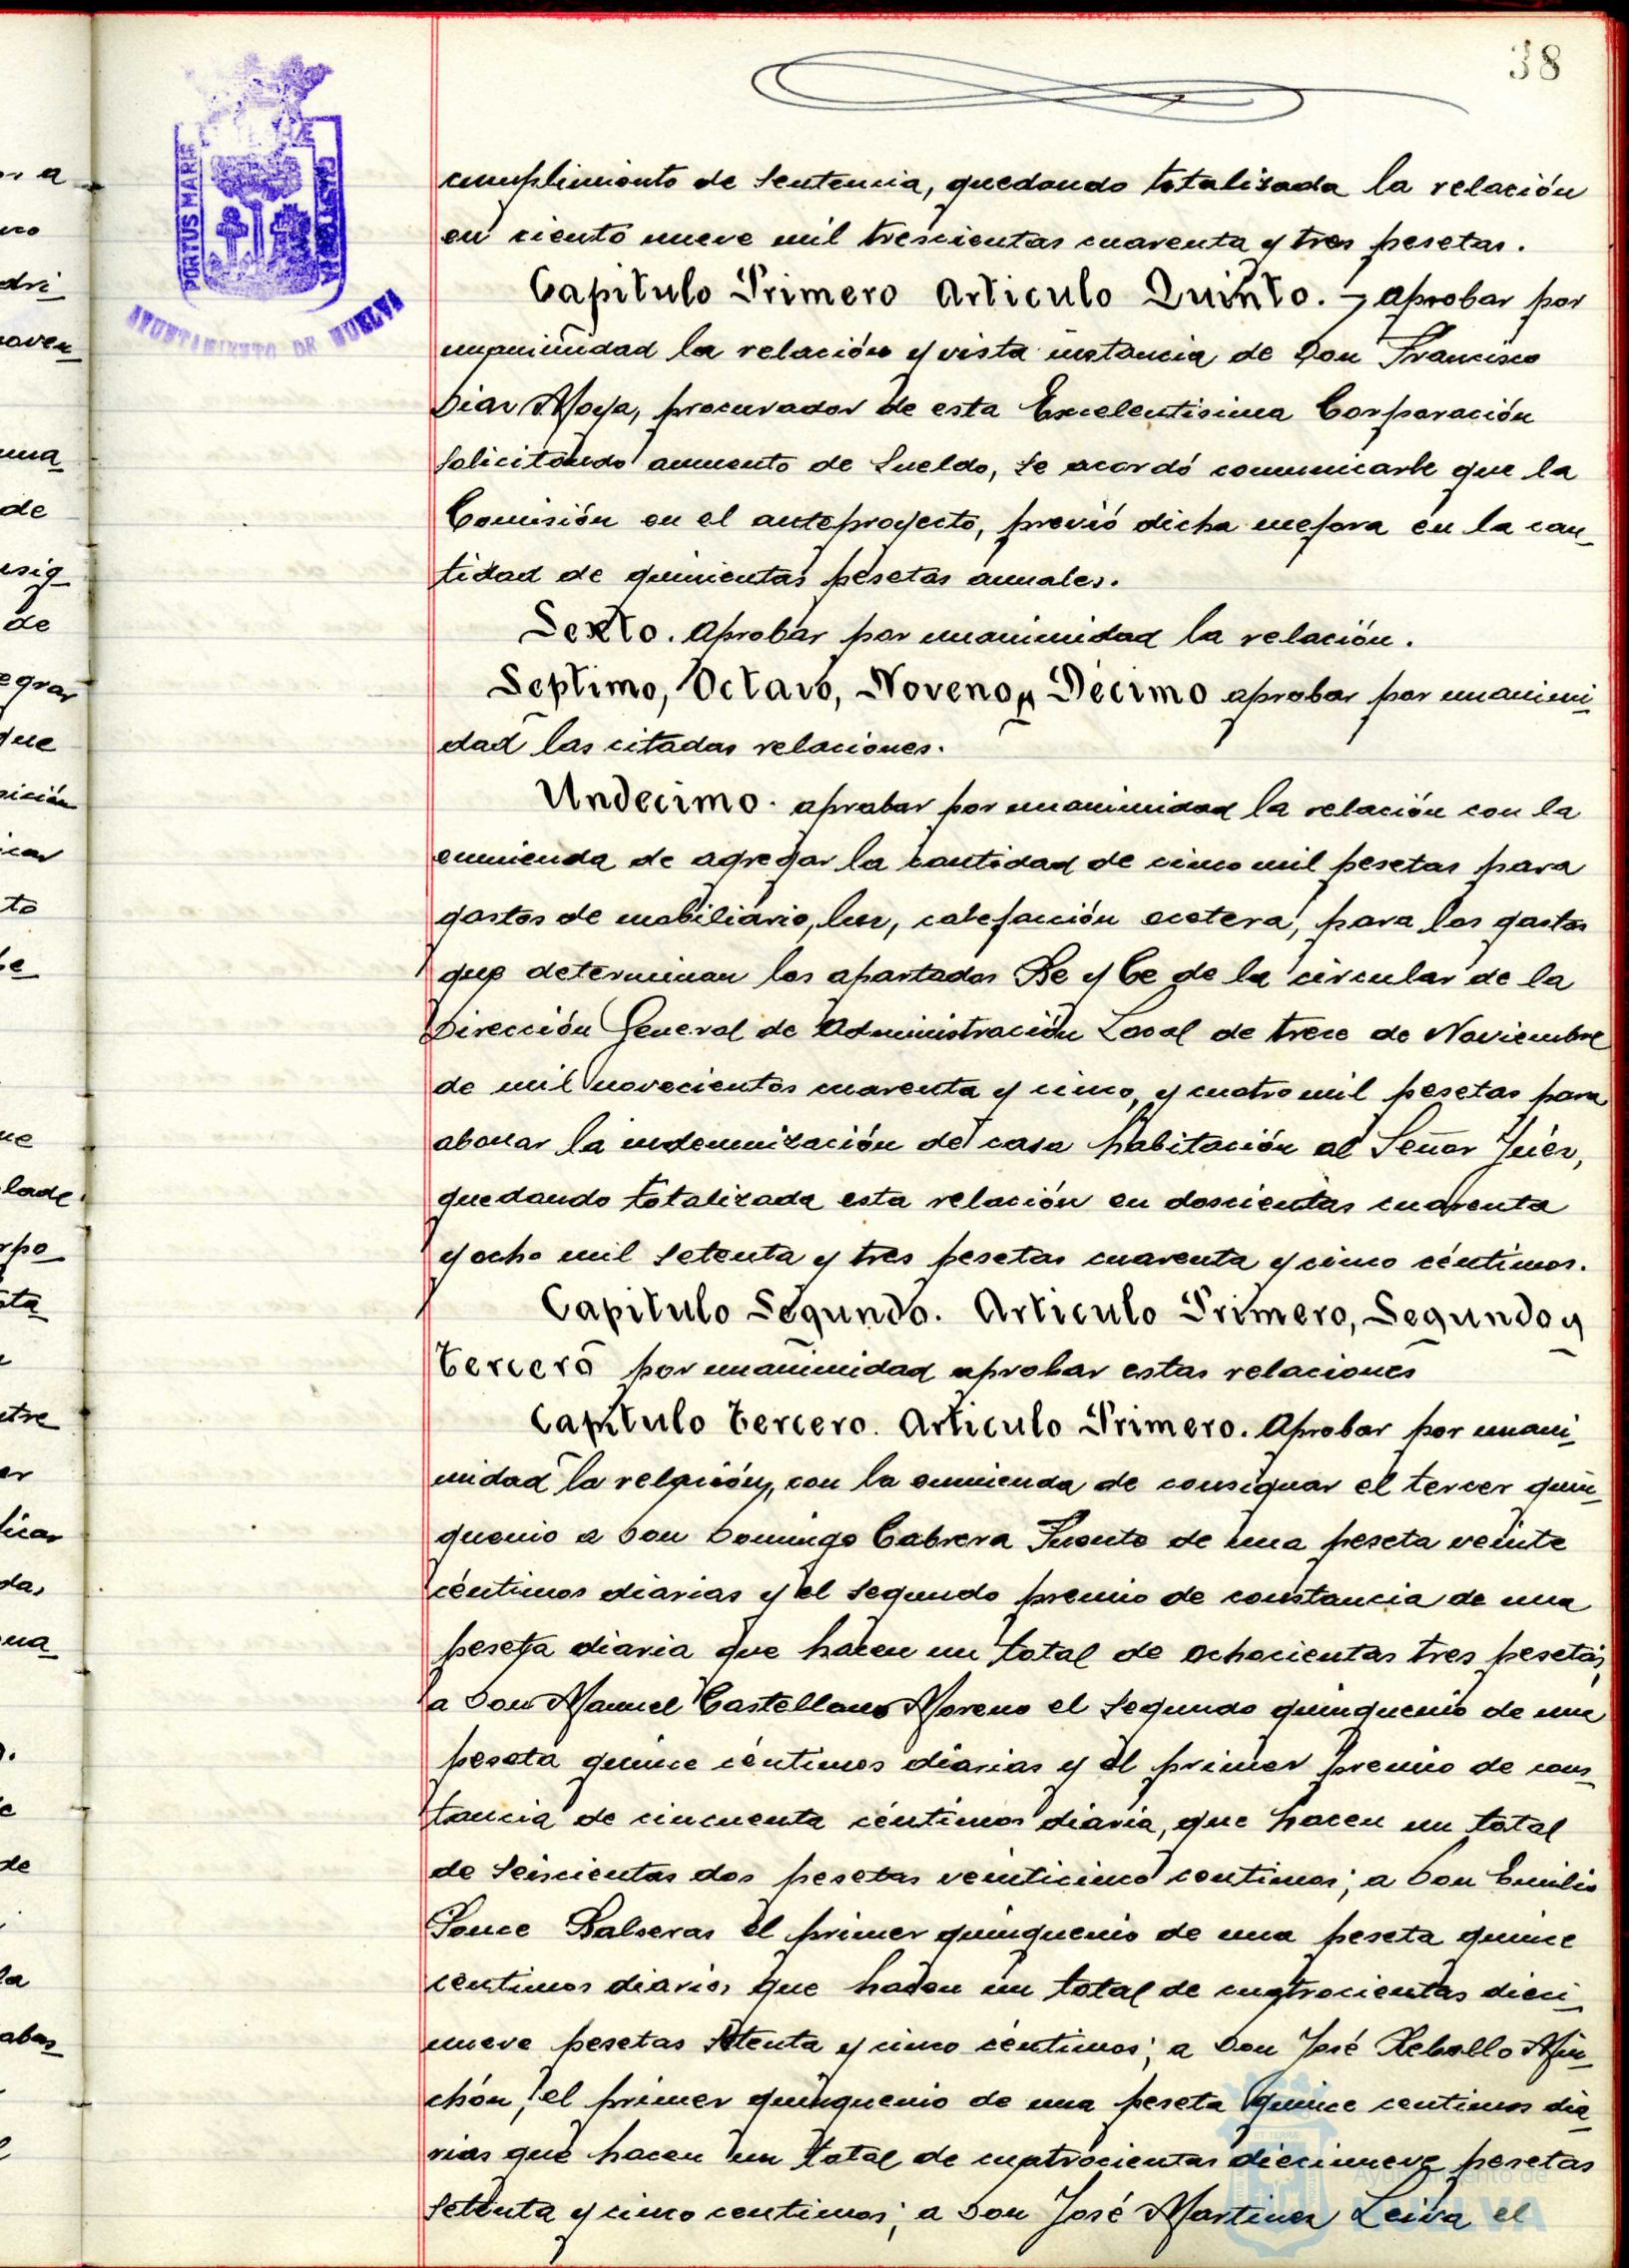 38
PORTUS MARIS
AYUNTAMIENTO DE HUELVA
cumplimiento de Sentencia, quedando totalizada la relación
en ciento nueve mil trescientas cuarenta y tres pesetas.
Capitulo Primero Articulo Quinto. - aprobar por
unanimidad la relación y vista instancia de Don Francisco
Diaz Moya, procurador de esta Excelentisima Corporación
solicitando aumento de sueldo, se acordó comunicarle que la
Comisión en el anteproyecto, previó dicha mejora en la can_
tidad de quinientas pesetas anuales.
Sexto. aprobar por unanimidad la relación.
Septimo, Octavo, Noveno y Décimo aprobar por unanimi_
dad las citadas relaciones.
Undecimo. aprobar por unanimidad la relación con la
enmienda de agregar la cantidad de cinco mil pesetas para
gastos de mobiliario, luz, calefacción ecetera, para los gastos
que determinan los apartados Be y Ce de la circular de la
Dirección General de Administración Local de trece de Noviembre
de mil novecientos cuarenta y cinco, y cuatro mil pesetas para
abonar la indemnización de casa habitación al Señor Juez,
quedando totalizada esta relación en doscientas cuarenta
y ocho mil setenta y tres pesetas cuarenta y cinco céntimos.
Capitulo Segundo. Articulo Primero, Segundo y
Tercero por unanimidad aprobar estas relaciones
Capitulo Tercero. Articulo Primero. Aprobar por unani_
midad la relación, con la enmienda de consignar el tercer quin_
quenio a Don Domingo Cabrera Puente de una peseta veinte
céntimos diarias y el segundo premio de constancia de una
peseta diaria que hacen un total de ochocientas tres pesetas;
a Don Manuel Castellano Moreno el segundo quinquenio de una
peseta quince céntimos diarias y el primer premio de cons_
tancia de cincuenta céntimos diaria, que hacen un total
de Seiscientas dos pesetas veinticinco centimos; a Don Emilio
Ponce Balseras el primer quinquenio de una peseta quince
céntimos diarios que hacen un total de cuatrocientas dieci_
nueve pesetas setenta y cinco céntimos; a Don José Rebollo Min_
chón, el primer quinquenio de una peseta quince centimos dia_
rias que hacen un total de cuatrocientas diecinueve pesetas
setenta y cinco centimos; a Don José Martinez Leiva el
Ayuntamiento de
HUELVA